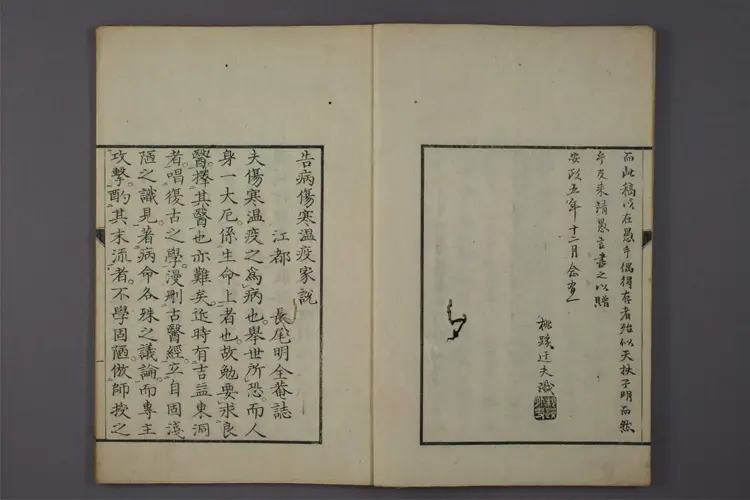 而此稿以在愚手偶得存者殆似天扶子明而然
乎及來請愚言書之以贈
安政五年十二月念
桃蹊迂夫識
告病傷寒温疫家説
江都 長尾明全菴誌
夫傷寒温疫之為病也舉世所恐而人
身一大厄係生命上者也故勉要求良
醫擇其醫也亦難矣近時有吉益東洞
者唱復古之學漫刪古醫經立自固淺
陋之識見著病命各殊之議論而專主
攻擊酌其末流者不學固陋倣師授之